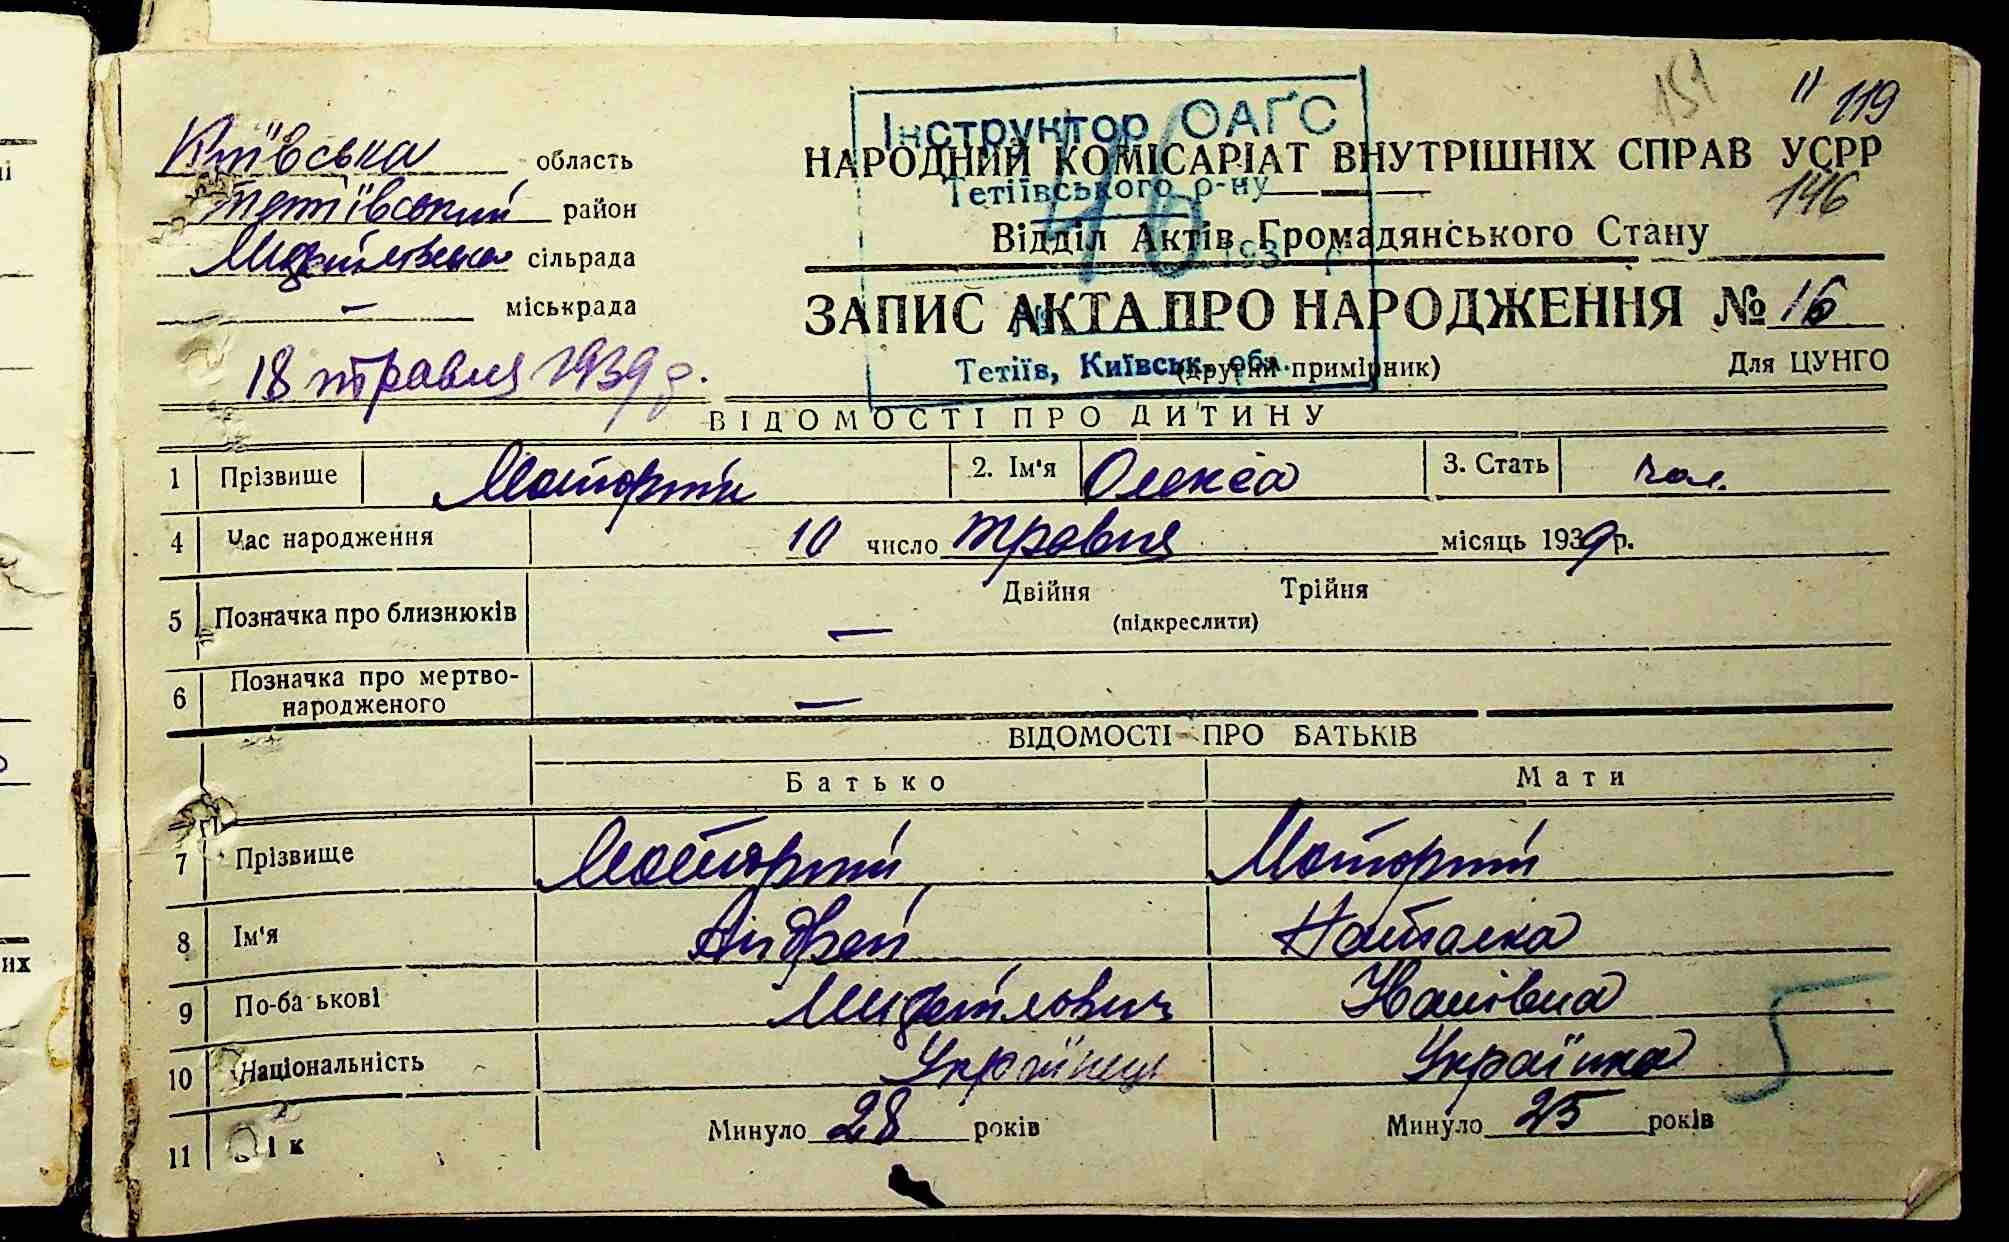 151
" 119
Інструктор ОАГС
Тетіївського р-ну
16
193 г.
№
Тетіїв, Київськ. обл.
Київська область
Тетіївський район
сільрада
— міськрада
18 травня 1939 р.
НАРОДНИЙ КОМІСАРІАТ ВНУТРІШНІХ СПРАВ УСРР
146
Відділ Актів Громадянського Стану
ЗАПИС АКТА ПРО НАРОДЖЕННЯ № 16
(другий примірник) Для ЦУНГО
ВІДОМОСТІ ПРО ДИТИНУ
1 Прізвище 2. Ім'я Олекса 3. Стать чол.
4 Час народження 10 число травня місяць 1939 р.
5 Позначка про близнюків — Двійня Трійня
(підкреслити)
6 Позначка про мертво-
народженого —
ВІДОМОСТІ ПРО БАТЬКІВ
Батько Мати
7 Прізвище
8 Ім'я Андрей Наталка
9 По-ба ькові Іванівна
10 Національність Українець Українка
5
11 ік Минуло 28 років Минуло 25 років
их